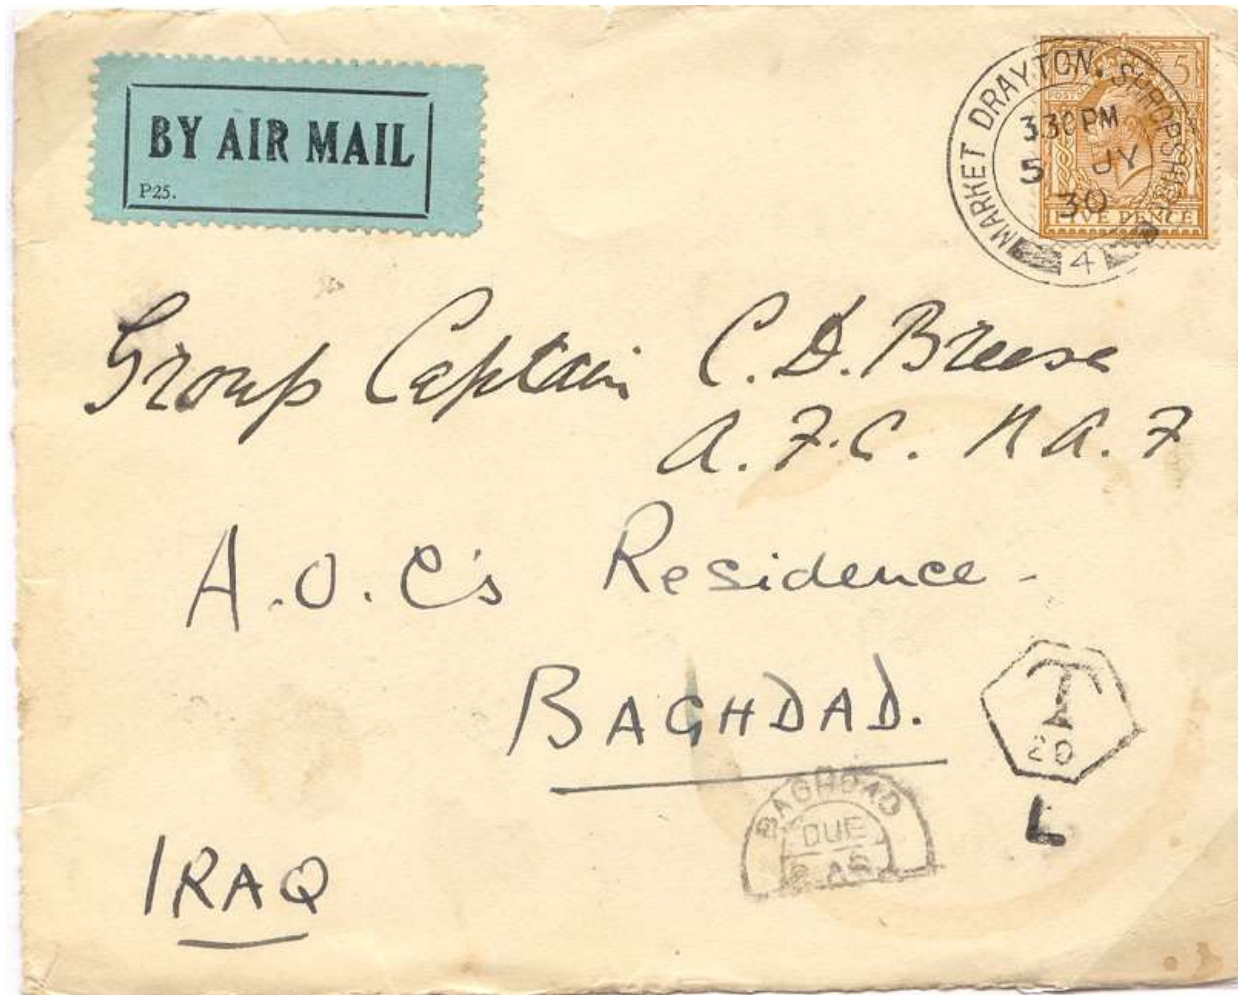 BY AIR MAIL
P.25.
MARKET DRAYTON. SHROPSHIRE
3 30 PM
5 JY
30
4
5
FIVE PENCE
Group Captain C. D. Breese
A. F. C. R A. F
A.O.C's Residence -
BAGHDAD.
IRAQ
T
20
L
BAGHDAD
DUE
AS